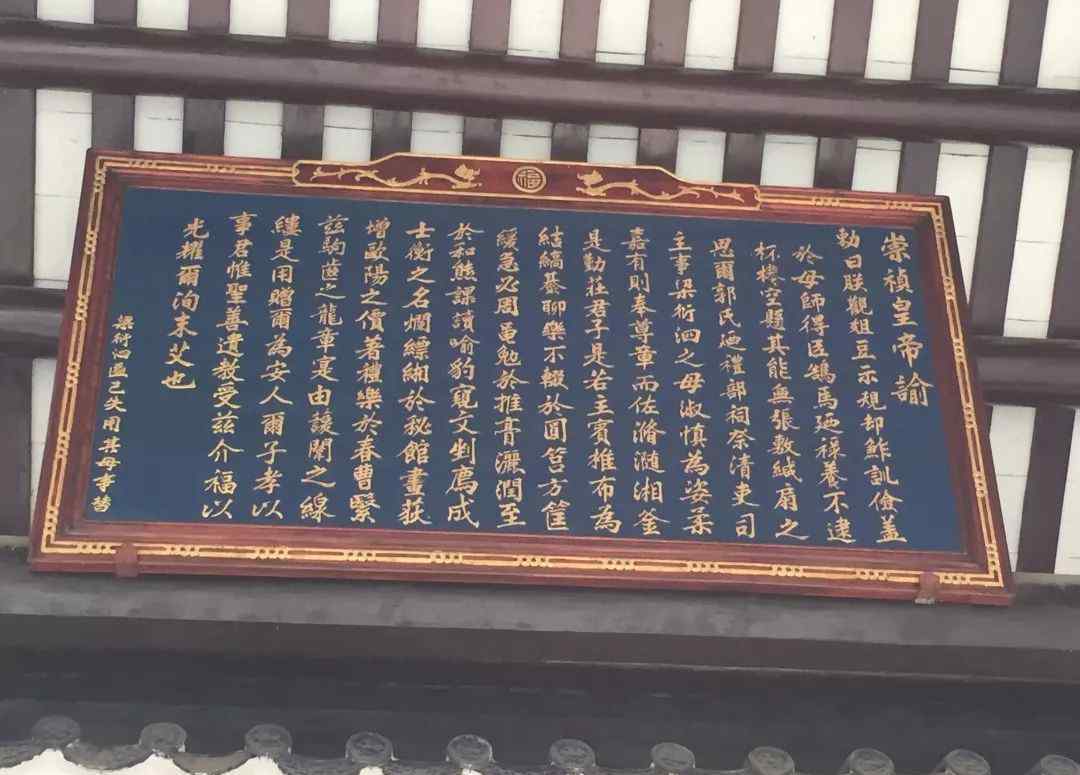 崇禎皇帝諭
勅曰朕觀俎豆示規却鮓訓儉蓋
於母師得臣鵠焉廼祿養不逮
杯棬空懸其能無張敷緘扇之
思爾郭氏廼禮部祠祭清吏司
主事梁衍泗之母淑慎為姿柔
嘉有則奉尊章而佐滫瀡湘釜
是勤莊君子是若主賓推布為
結縞綦聊樂不輟於圓筥方筐
緩急必周黽勉於推膏灑潤至
於和熊課讀喻狗窺文剉薦成
士衡之名爛縹緗於秘館畫荻
增歐陽之價著禮樂於春曹繄
茲駒遊之龍章寔由諼闈之線
縷是用贈爾為安人爾子孝以
事君惟聖善遺教受茲介福以
光耀爾洵未艾也
梁衍泗 己 用其母事